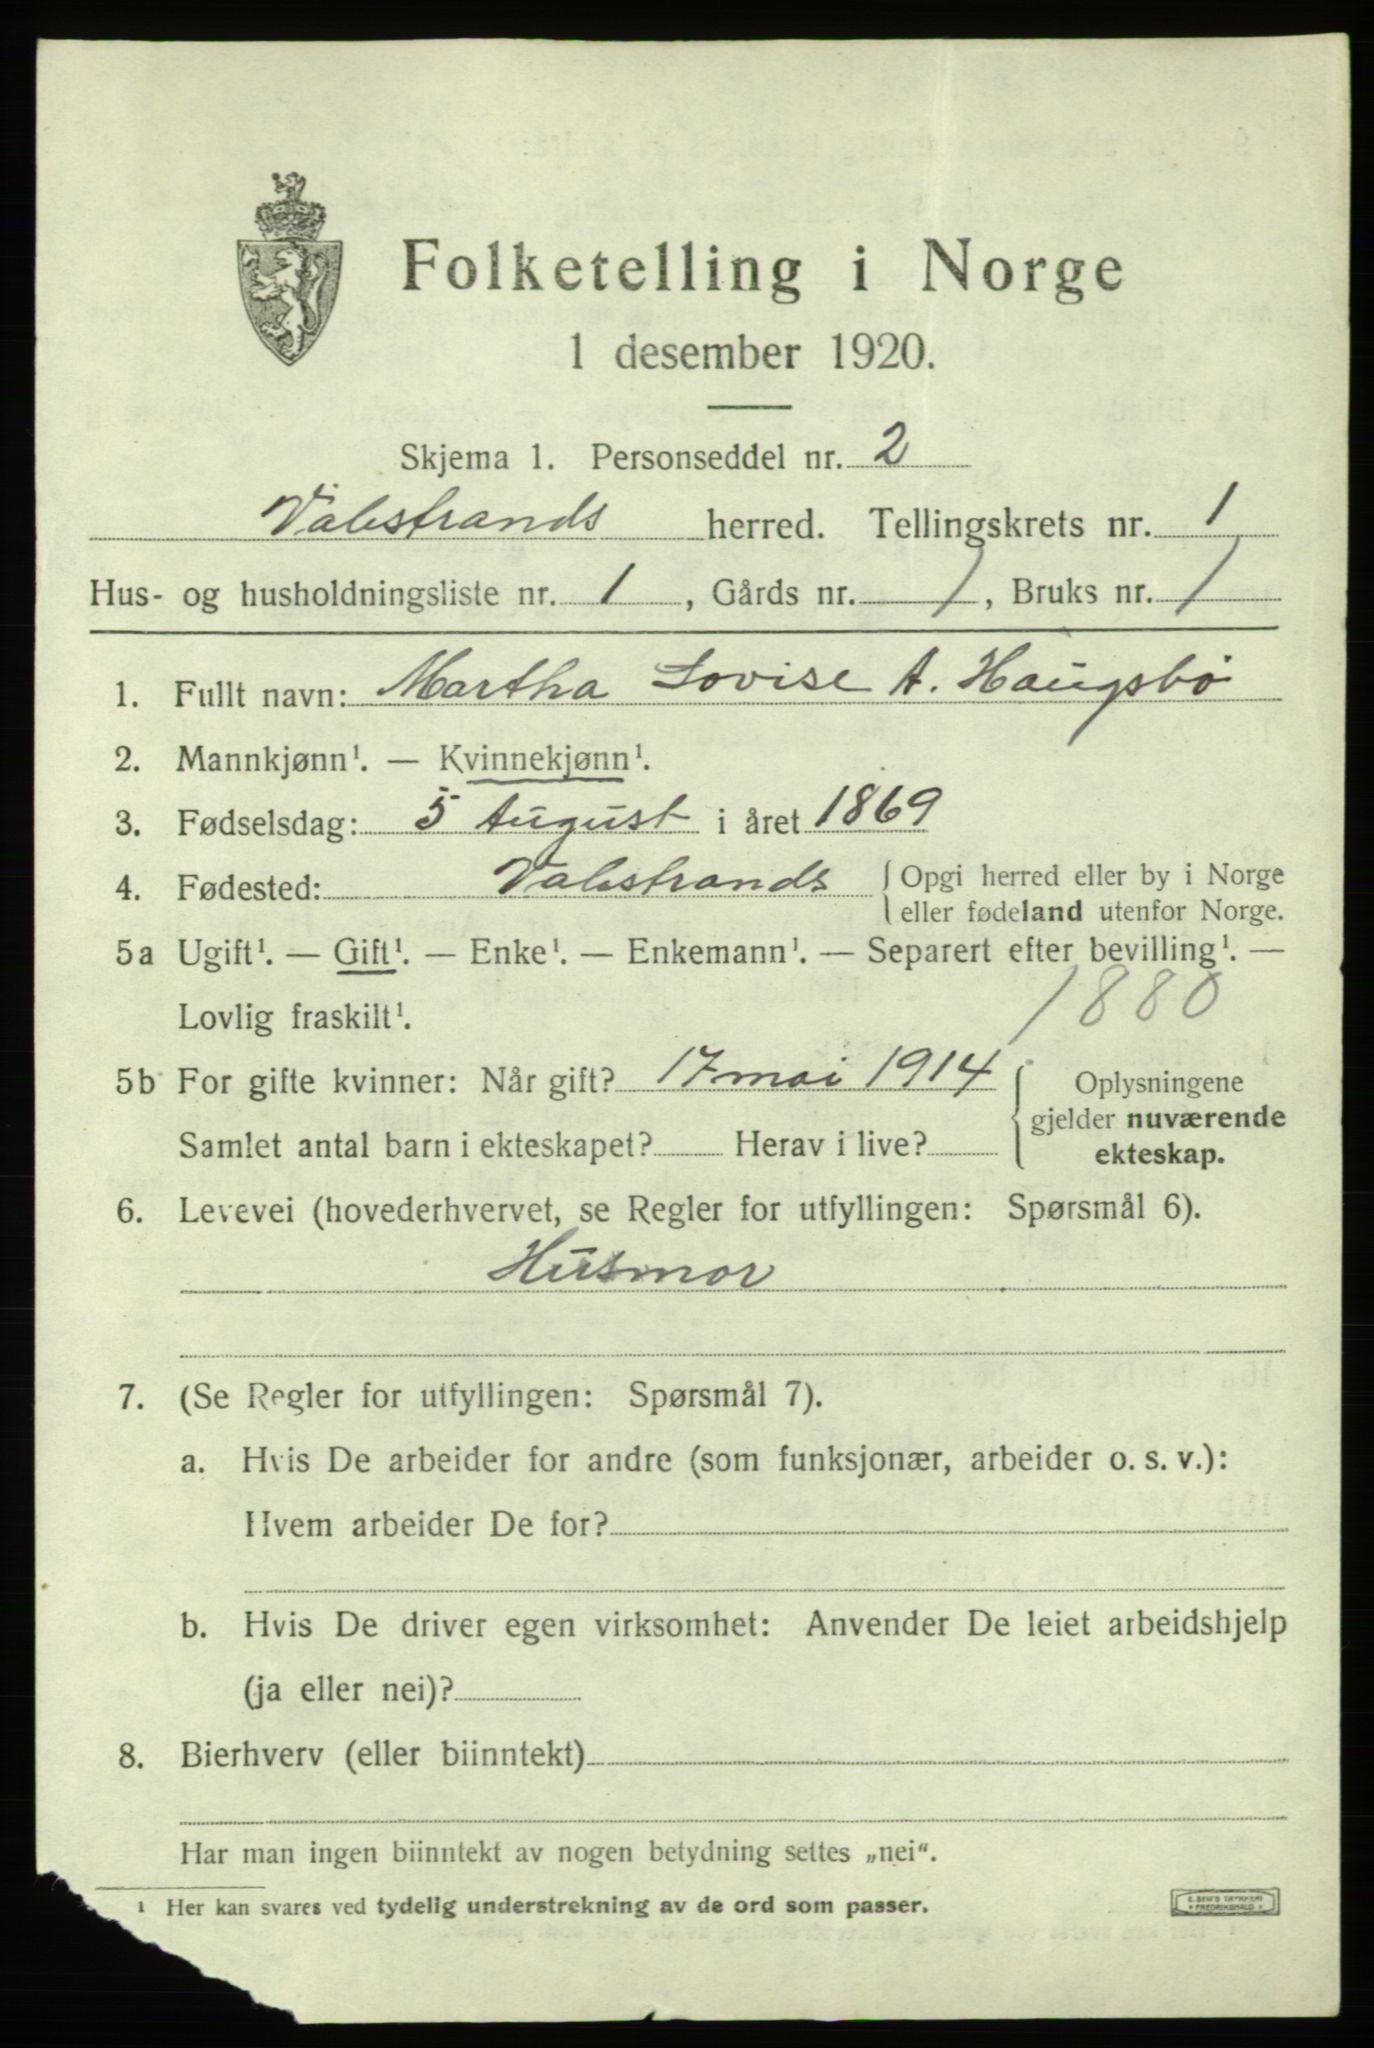 Folketelling i Norge
1 desember 1920.
Skjema 1. Personseddel nr. 2
Valestrands herred. Tellingskrets nr. 1
Hus- og husholdningsliste nr. 1, Gårds nr. 1, Bruks nr. 1
1. Fullt navn: Martha Lovise A. Haugsbö
2. Mannkjønn¹. — Kvinnekjønn¹.
3. Fødselsdag: 5 August i året 1869
4. Fødested: Valestrands { Opgi herred eller by i Norge
eller fødeland utenfor Norge.
5a Ugift¹. — Gift¹. — Enke¹. — Enkemann¹. — Separert efter bevilling¹. —
Lovlig fraskilt¹. 1880
5b For gifte kvinner: Når gift? 17 mai 1914 { Oplysningene
gjelder nuværende
Samlet antal barn i ekteskapet? Herav i live?
ekteskap.
6. Levevei (hovederhvervet, se Regler for utfyllingen: Spørsmål 6).
Husmor
7. (Se Regler for utfyllingen: Spørsmål 7).
a. Hvis De arbeider for andre (som funksjonær, arbeider o. s. v.):
Hvem arbeider De for?
b. Hvis De driver egen virksomhet: Anvender De leiet arbeidshjelp
(ja eller nei)?
8. Bierhverv (eller biinntekt)
Har man ingen biinntekt av nogen betydning settes „nei“.
¹ Her kan svares ved tydelig understrekning av de ord som passer.
E. SEM'S TRYKKERI
• FREDRIKSHALD •